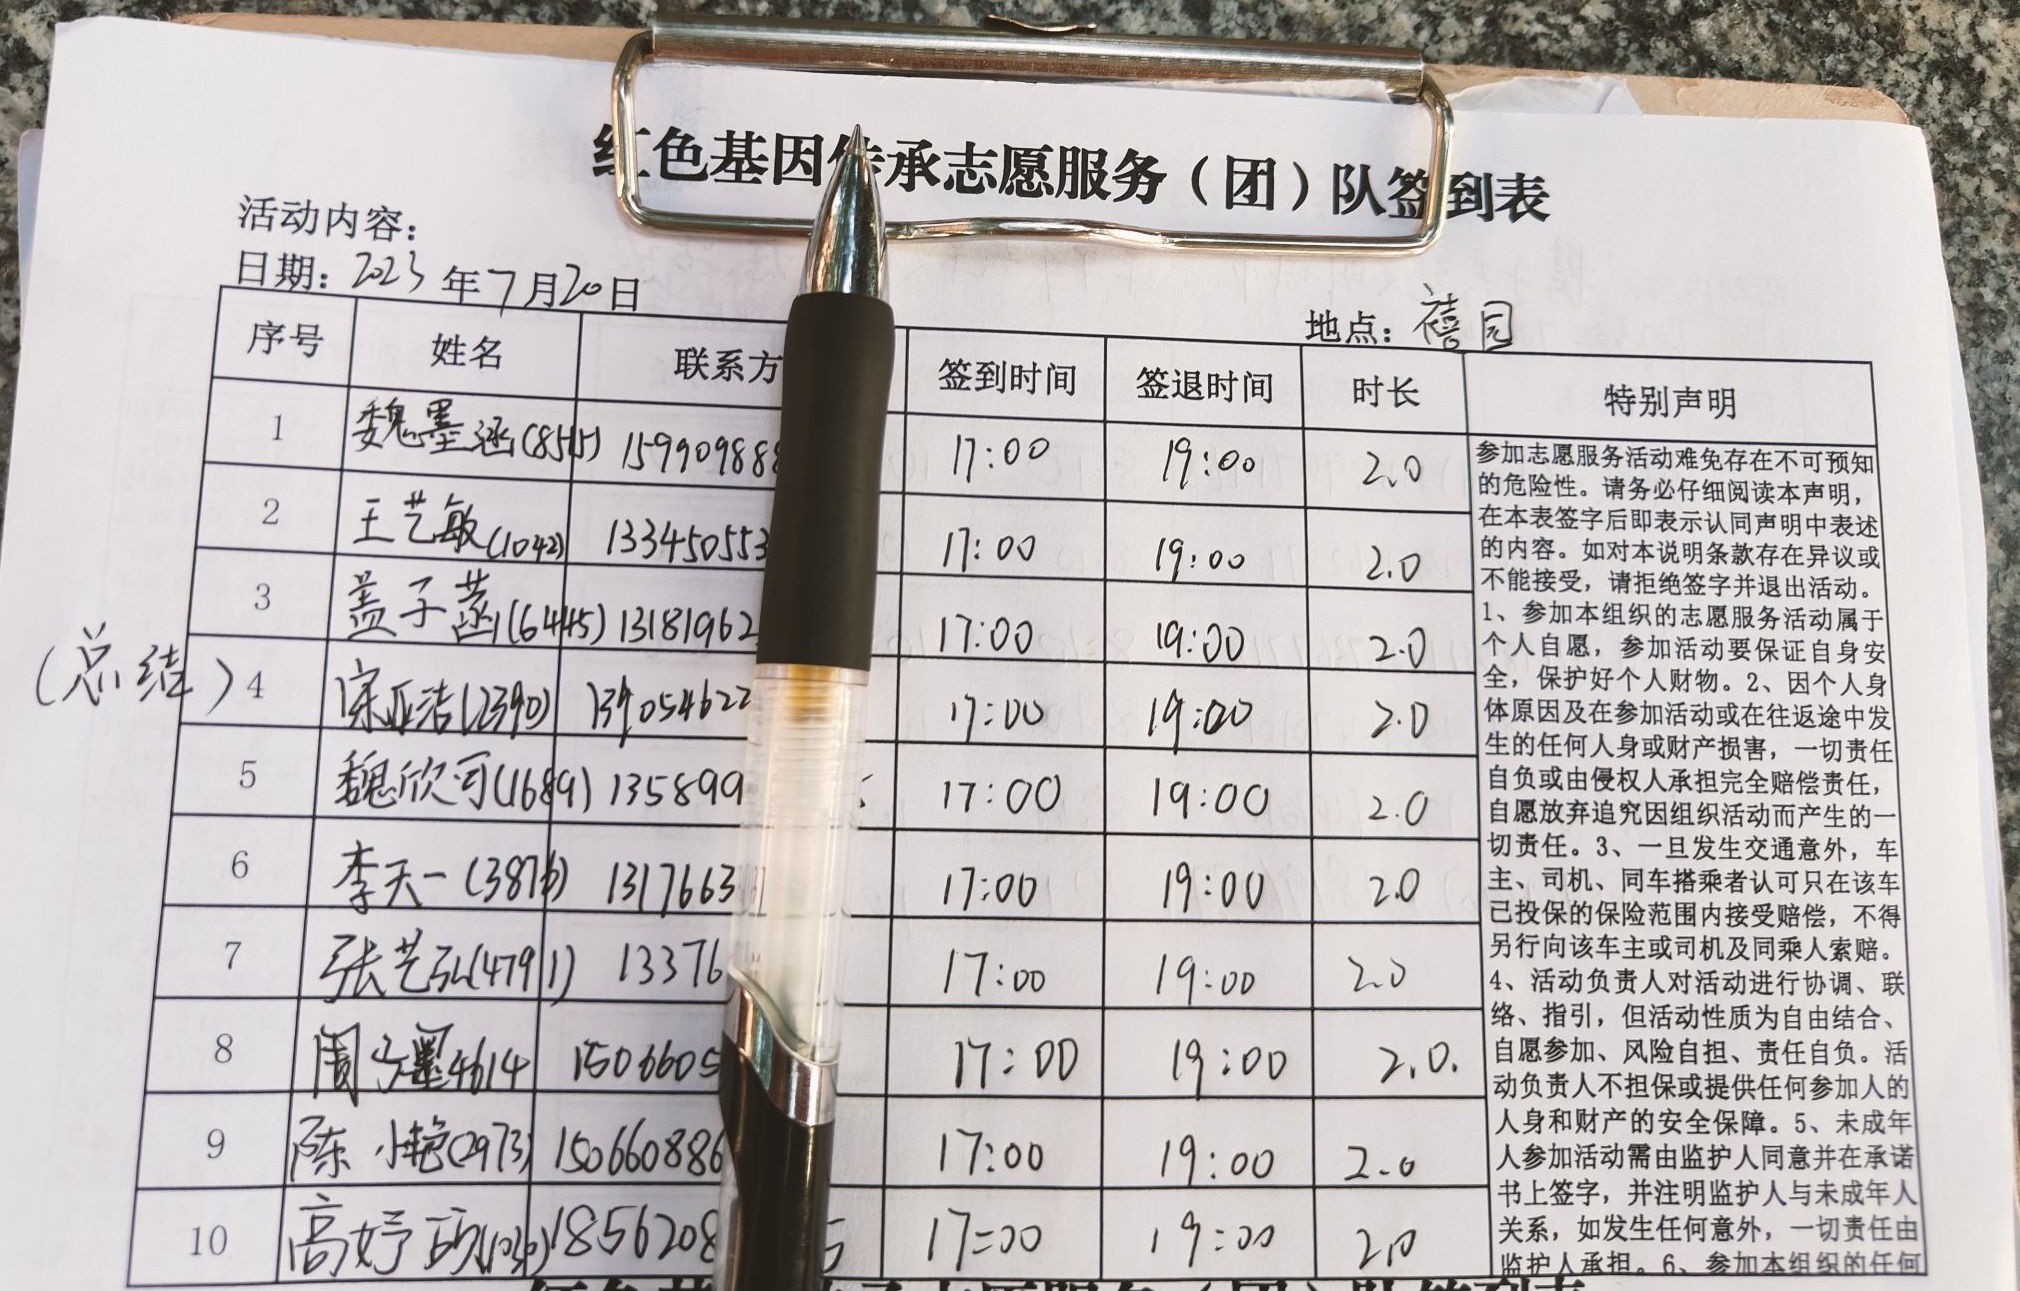 红色基因传承志愿服务（团）队签到表
活动内容：
日期：2023年7月20日
地点：禧园
序号 姓名 联系方 签到时间 签退时间 时长 特别声明
1 魏墨涵(8515) 159909888 17:00 19:00 2.0
2 王艺敏(1042) 133450553 17:00 19:00 2.0
3 盖子菡(6445) 13181962 17:00 19:00 2.0
(总结) 4 宋亚洁(2390) 139054622 17:00 19:00 2.0
5 魏欣可(1689) 135899 17:00 19:00 2.0
6 李天一(3876) 1317663 17:00 19:00 2.0
7 张艺弘(4791) 13376 17:00 19:00 2.0
8 周 墨4614 15066605 17:00 19:00 2.0.
9 陈小艳(2973) 150660886 17:00 19:00 2.0
10 高妤 18562085 17:00 19:00 2.0
参加志愿服务活动难免存在不可预知
的危险性。请务必仔细阅读本声明，
在本表签字后即表示认同声明中表述
的内容。如对本说明条款存在异议或
不能接受，请拒绝签字并退出活动。
1、参加本组织的志愿服务活动属于
个人自愿，参加活动要保证自身安
全，保护好个人财物。2、因个人身
体原因及在参加活动或在往返途中发
生的任何人身或财产损害，一切责任
自负或由侵权人承担完全赔偿责任，
自愿放弃追究因组织活动而产生的一
切责任。3、一旦发生交通意外，车
主、司机、同车搭乘者认可只在该车
已投保的保险范围内接受赔偿，不得
另行向该车主或司机及同乘人索赔。
4、活动负责人对活动进行协调、联
络、指引，但活动性质为自由结合、
自愿参加、风险自担、责任自负。活
动负责人不担保或提供任何参加人的
人身和财产的安全保障。5、未成年
人参加活动需由监护人同意并在承诺
书上签字，并注明监护人与未成年人
关系，如发生任何意外，一切责任由
监护人承担。6、参加本组织的任何